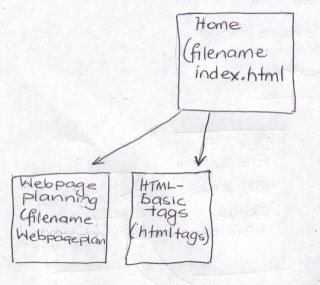 Home
(filename
index.html
Webpage
planning
(filename
Webpageplan
HTML-
basic
tags
(htmltags)